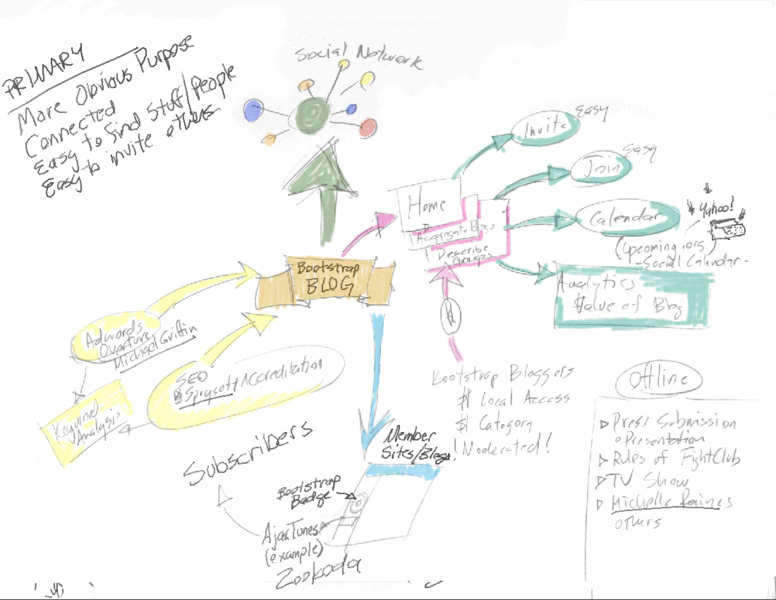 PRIMARY
More Obvious Purpose
Connected
Easy to find Stuff/People
Easy to invite others
Social Network
Invite
Easy
Join
Easy
Home
Describe
Groups
Calendar
Yahoo!
(Upcoming.org)
-Social Calendar-
Analytics
Value of Blog
Bootstrap
BLOG
Adwords
Overture
Michael Griffin
SEO
Accreditation
Keyword
Analysis
Subscribers
Bootstrap Bloggers
$ Local Access
$ Category
! Moderated!
Member
Sites/Blogs
Bootstrap
Badge
AjaxTunes
(example)
Zookoda
Offline
Press Submission
Presentation
Rules of FightClub
TV Show
Michelle Raines
others